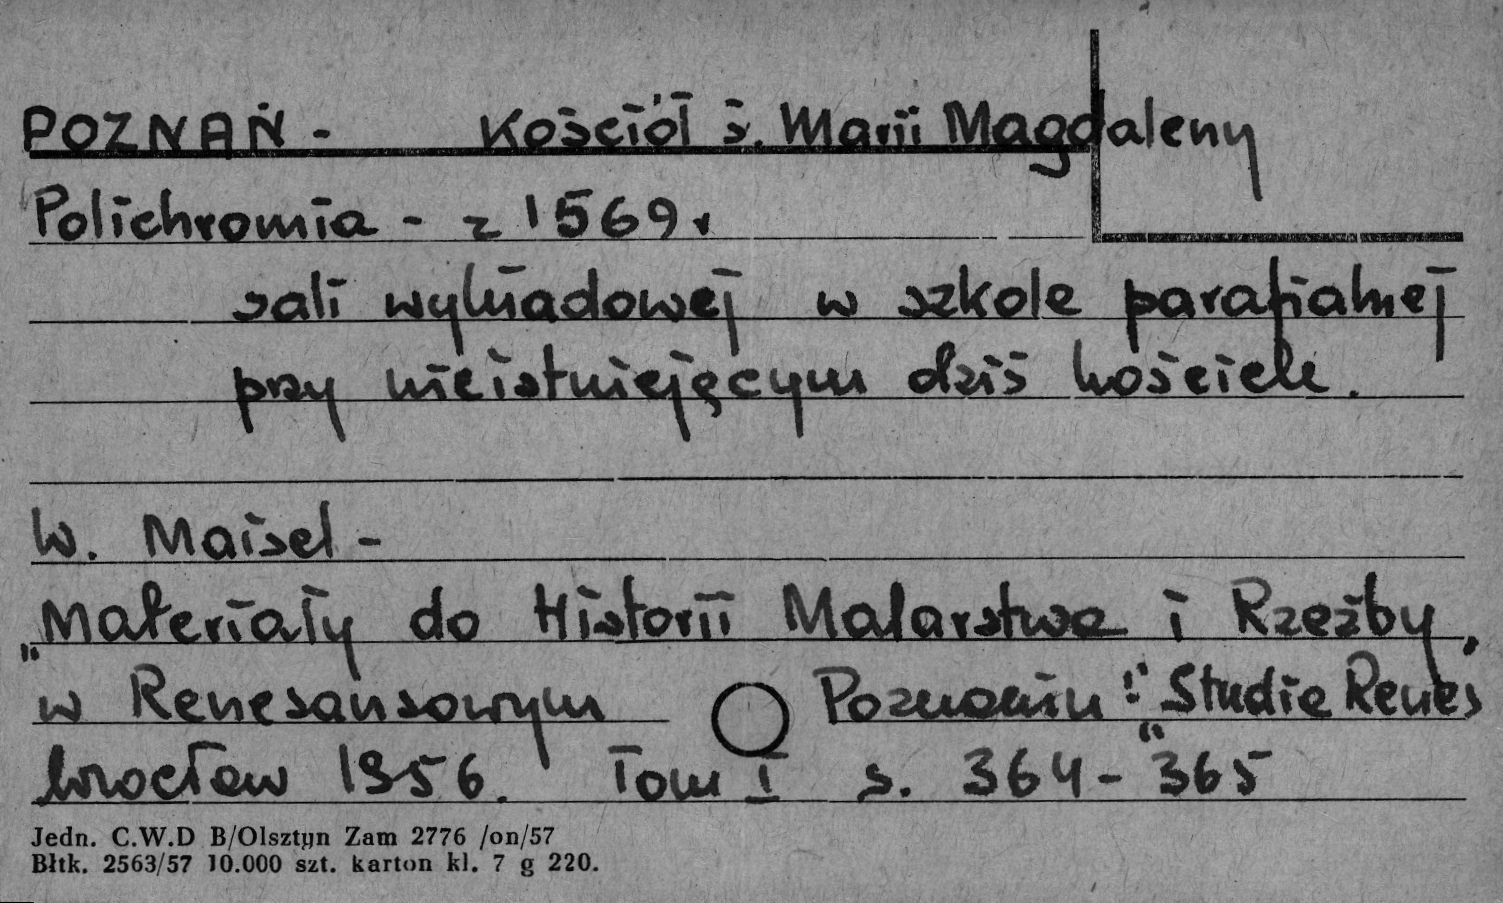 POZNAŃ - Kościół ś. Marii Magdaleny
Polichromia - z 1569 r
sali wykładowej w szkole parafialnej
przy nieistniejącym dziś kościele.
W. Maisel -
„Materiały do Historii Malarstwa i Rzeźby,
w Renesansowym Poznaniu" „Studia Renes
Wrocław 1956. Tom I s. 364-365
Jedn. C.W.D B/Olsztyn Zam 2776 /on/57
Błtk. 2563/57 10.000 szt. karton kl. 7 g 220.